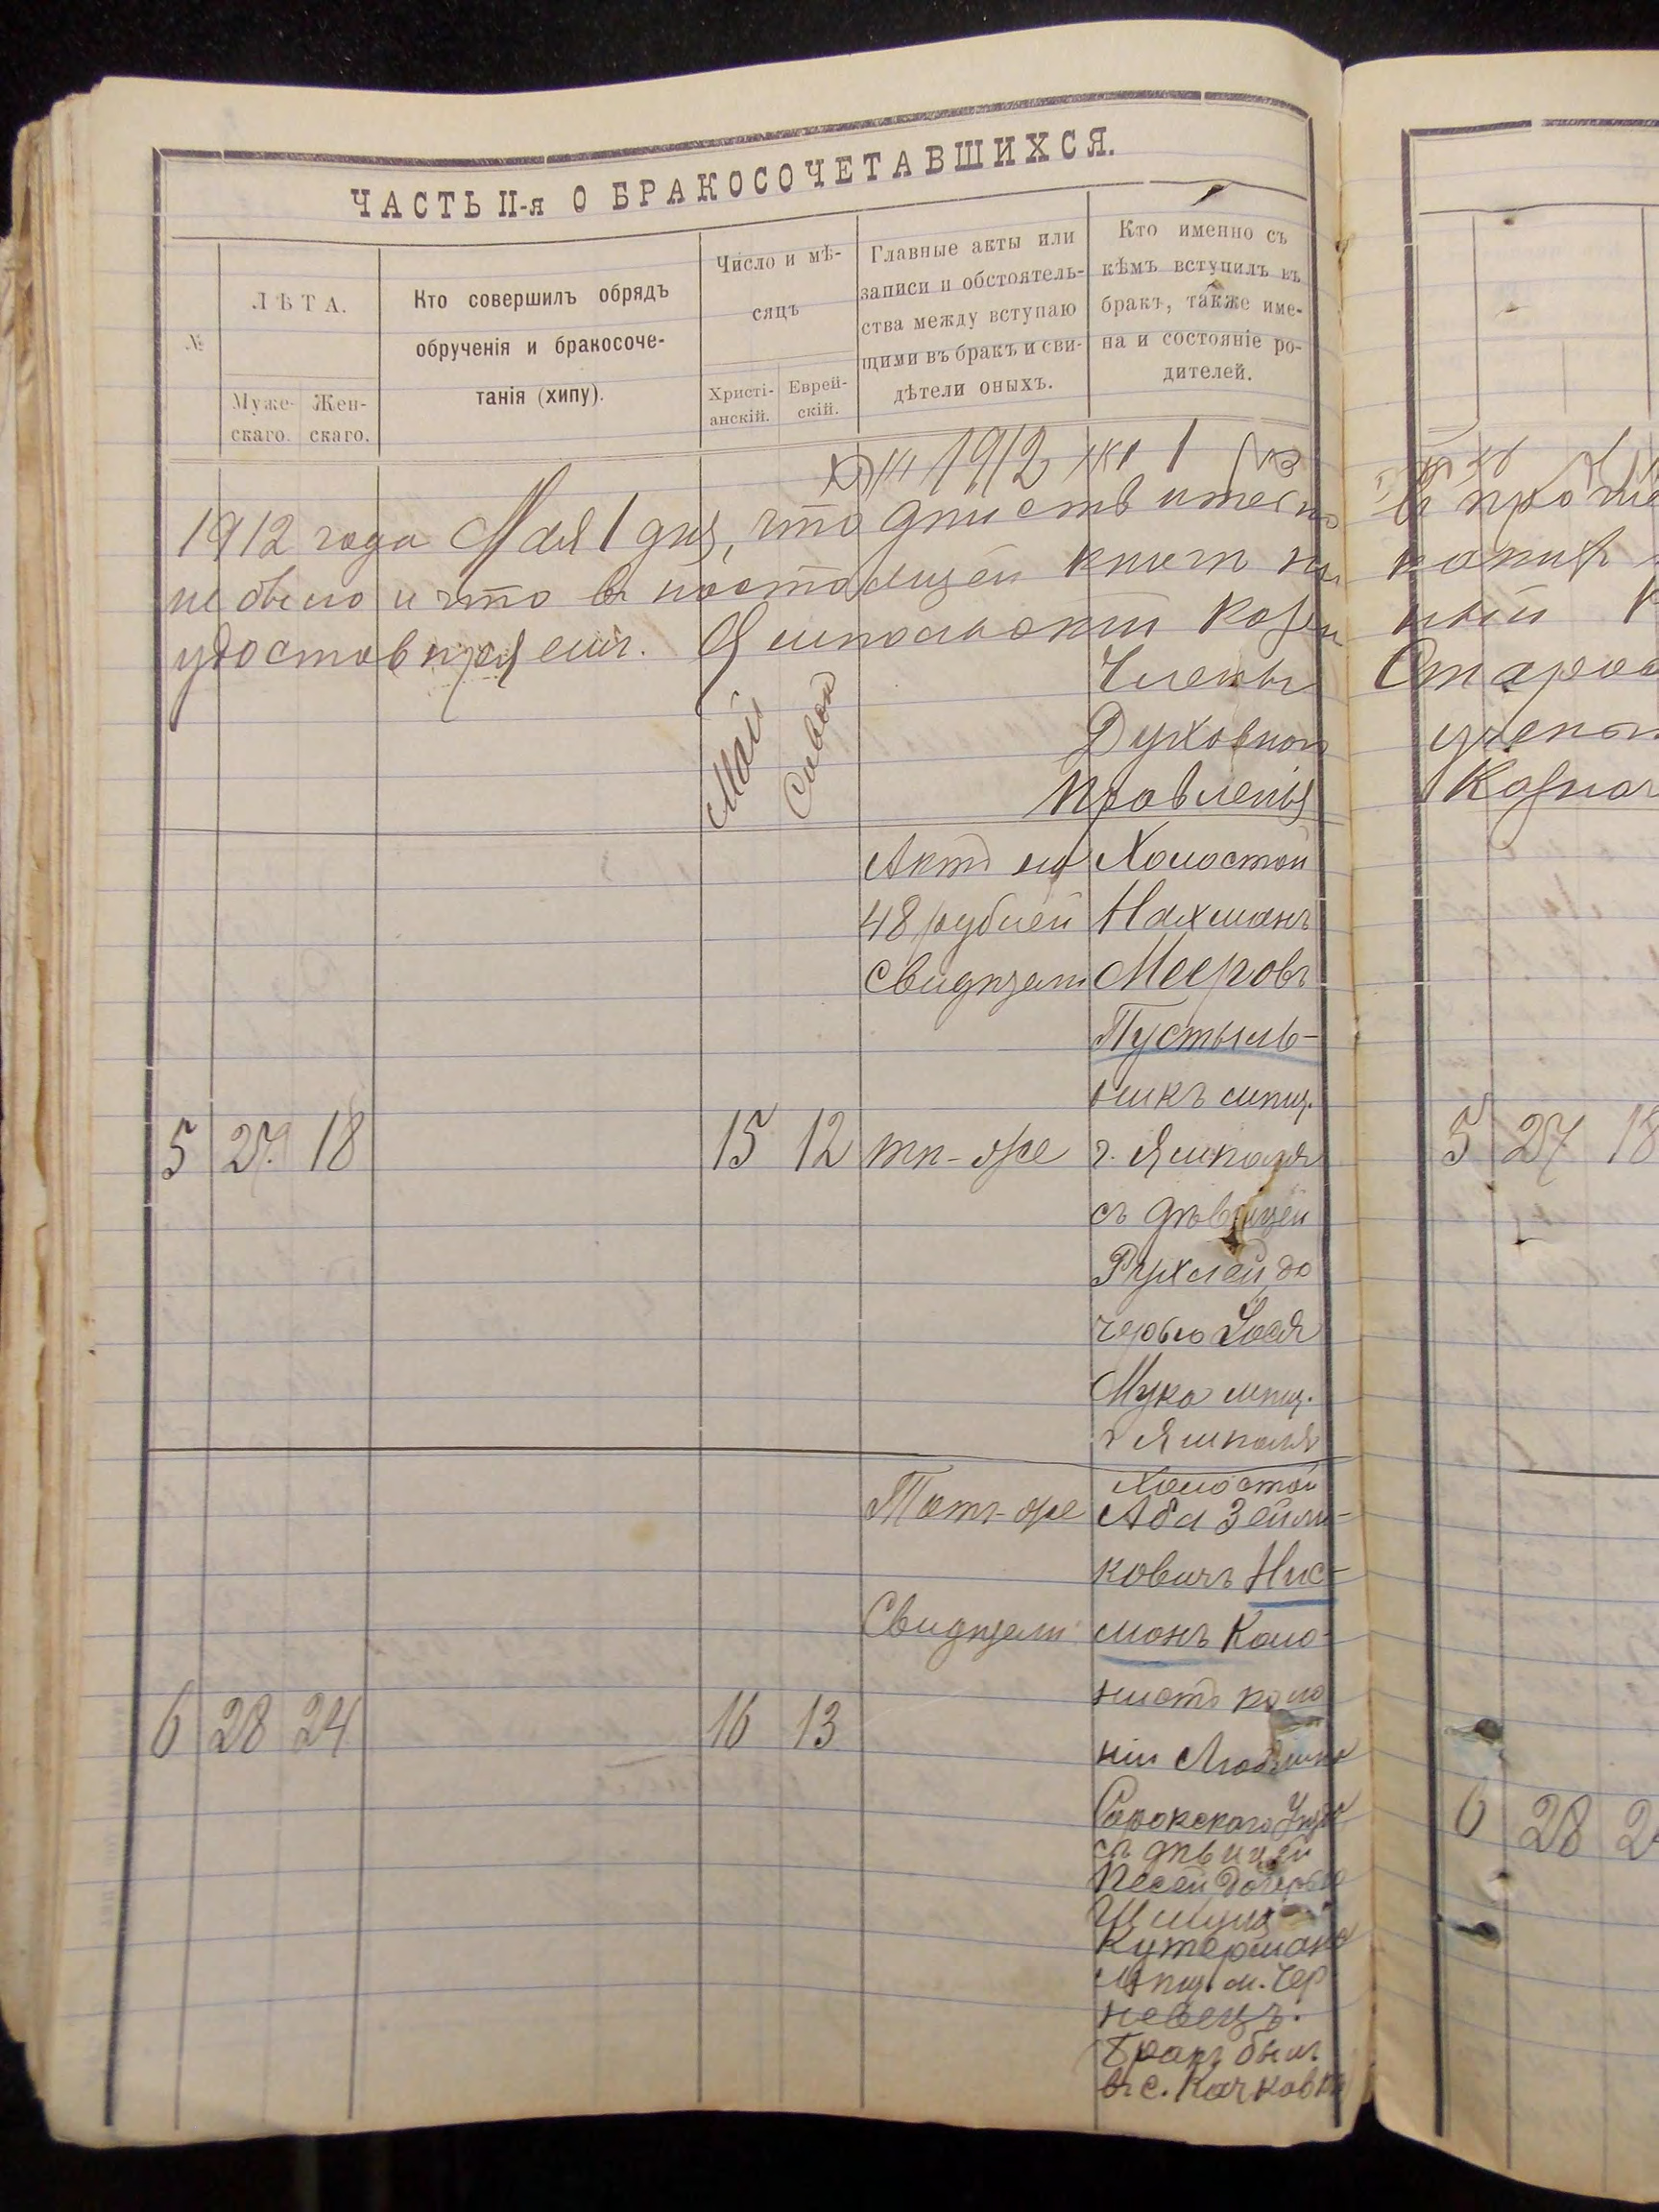 ЧАСТЬ II-я О БРАКОСОЧЕТАВШИХСЯ.
№
ЛѢТА.
Муже-
скаго.
Жен-
скаго.
Кто совершилъ обрядъ
обрученія и бракосоче-
танія (хипу).
Число и мѣ-
сяцъ
Христі-
анскій.
Еврей-
скій.
Главные акты или
записи и обстоятель-
ства между вступаю
щими въ бракъ и сви-
дѣтели оныхъ.
Кто именно съ
кѣмъ вступилъ въ
бракъ, также име-
на и состояніе ро-
дителей.
1912
1912 года Мая 1 дня, что дѣйствительно
не было и что въ настоящей книгѣ
удостовѣряемъ. Ямпольскій
Члены
Духовнаго
Правленія
Май
Сивон
Актъ на
48 рублей
Свидѣтели
тѣ-же
Холостой
Нахманъ
Мееровъ
Пустыль-
никъ мѣщ.
г. Ямполя
съ дѣвицей
Рухлей до
черью Іося
Мука мѣщ.
г Ямполя
5 27 18
15 12
Тотъ-же
Свидѣтели
Холостой
Аба Зейли-
ковичъ Нис-
монъ Коло-
нистъ коло
ніи Люблинъ
Сорокскаго Уѣзда
съ дѣвицей
Песей дочерью
Шмуля
Кутермана
мѣщ. м. Чер
невецъ.
Бракъ былъ
въ с. Качковкѣ
6 28 24
16 13
5 27 18
6 28